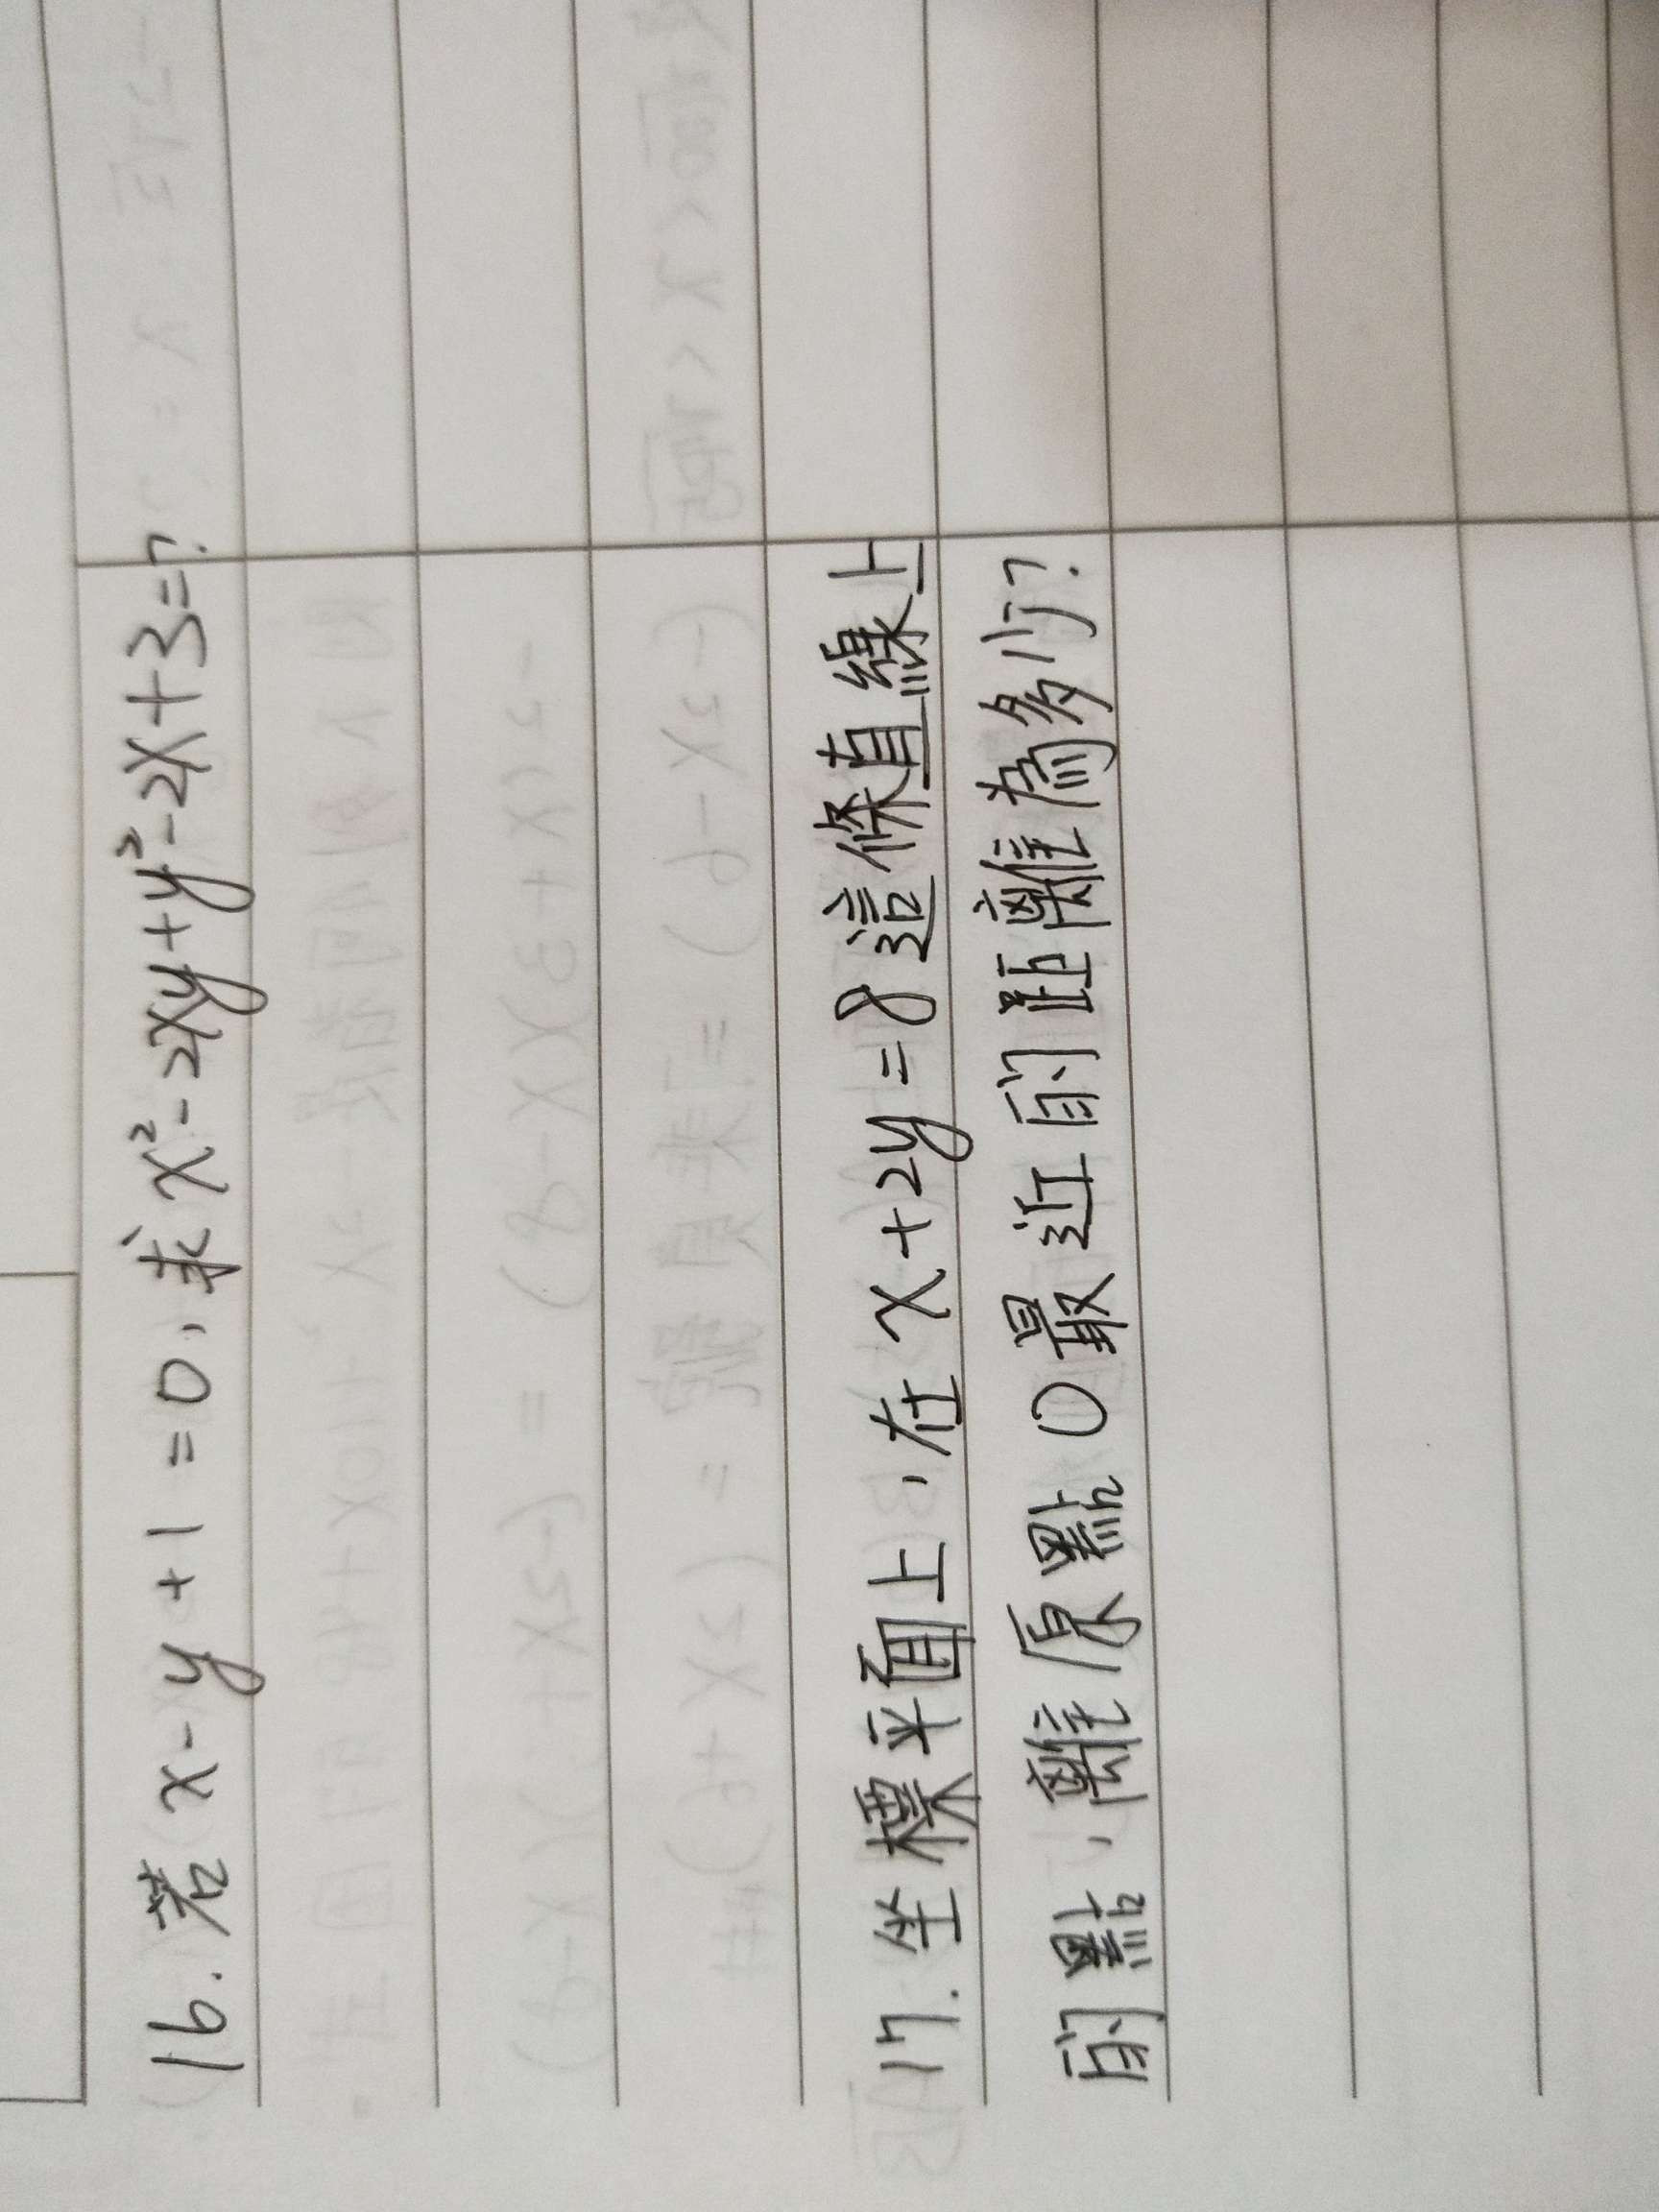 16. 若 x - y + 1 = 0, 求 x² - 2xy + y² - 2x + 3 = ?
17. 坐標平面上, 在 x + 2y = 8 這條直線上
的點, 離原點 O 最近的距離為多少?